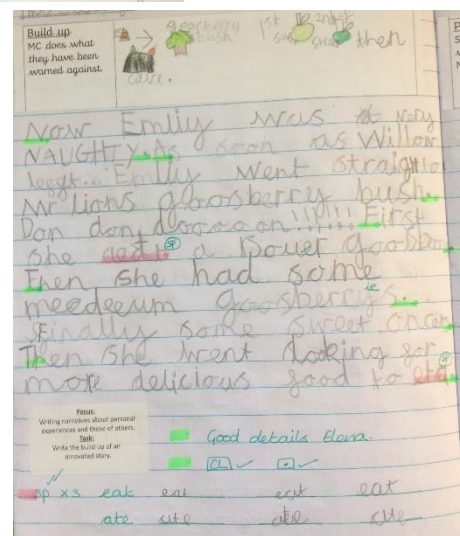 Build up
MC does what
they have been
warned against.
goosberry
bush
1st
2nd
then
cave.
Now Emliy was very
NAUGHTY. As soon as Willow
leegt... Emily went straight to
Mr lians goosberry bush.
Dan dan daaaaan!!!!!! First
she a souer
Then she had some
meedeeum goosberrys.
Finally some sweet onces
Then she went looking for
more delicious food to
Focus:
Writing narratives about personal
experiences and those of others.
Task:
Write the build up of an
innovated story.
Good details Elana.
CL ✓ . ✓
sp x3 eat eat eat eat
ate ate ate ate